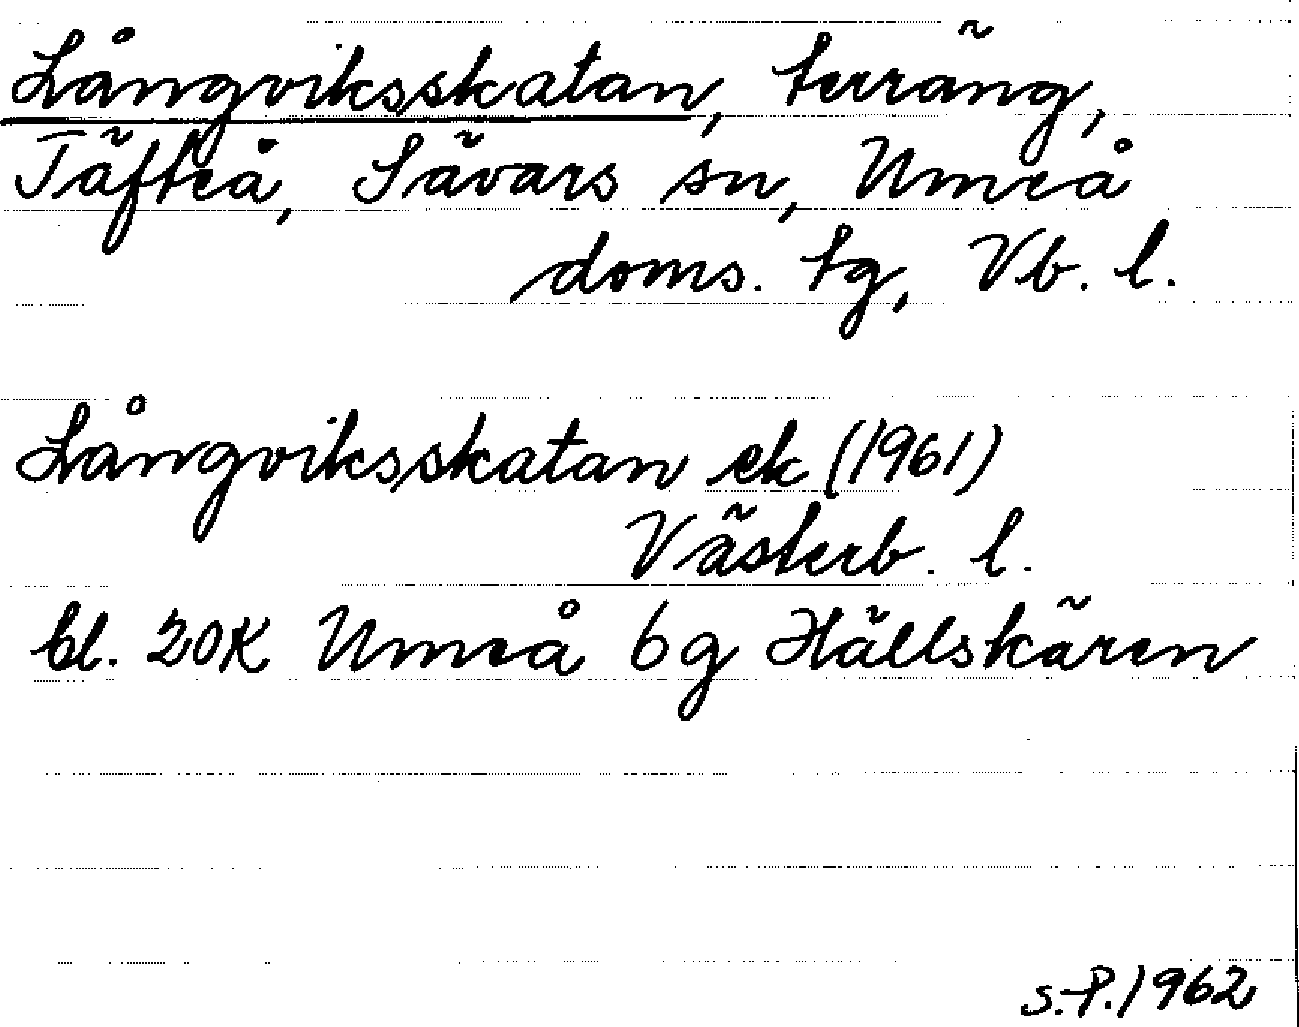 Långviksskatan, terräng,
Täfteå, Sävars sn, Umeå
doms. tg, Vb. l.
Långviksskatan ek (1961)
Västerb. l.
bl. 20K Umeå 6g Hällskären
S.P. 1962